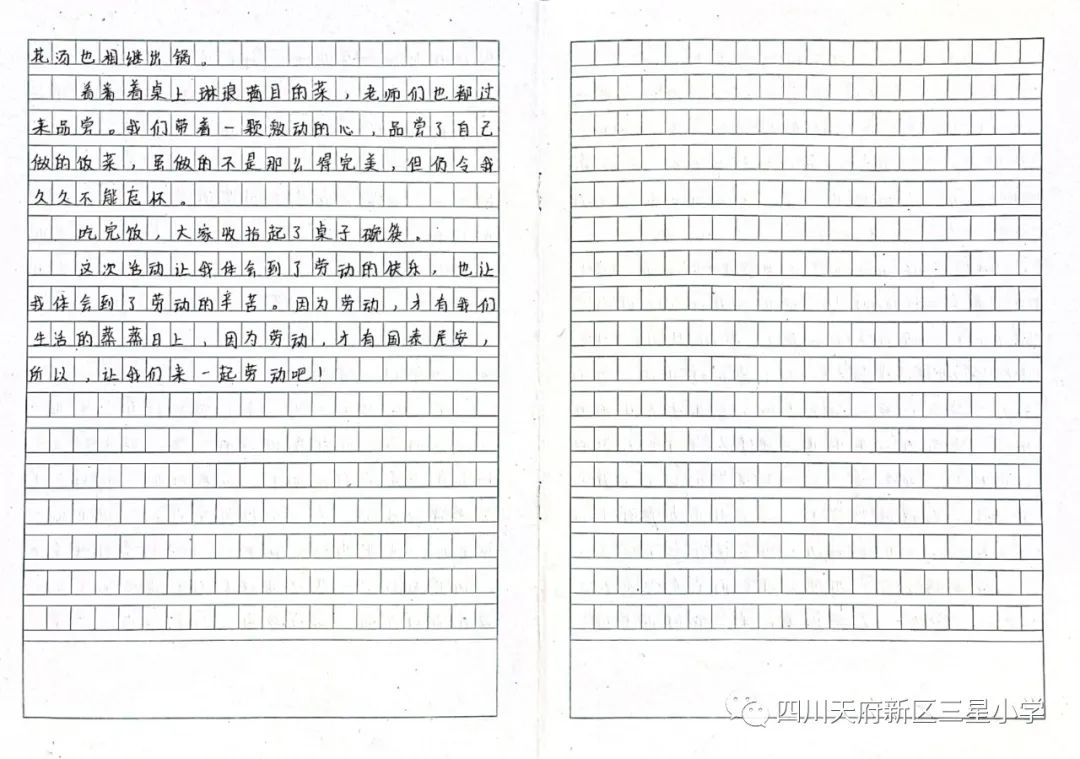 花汤也相继出锅。
看着着桌上琳琅满目的菜，老师们也都过
来品尝。我们带着一颗激动的心，品尝了自己
做的饭菜，虽做的不是那么得完美，但仍令我
久久不能忘怀。
吃完饭，大家收拾起了桌子碗筷。
这次活动让我体会到了劳动的快乐，也让
我体会到了劳动的辛苦。因为劳动，才有我们
生活的蒸蒸日上，因为劳动，才有国泰民安，
所以，让我们来一起劳动吧！
四川天府新区三星小学